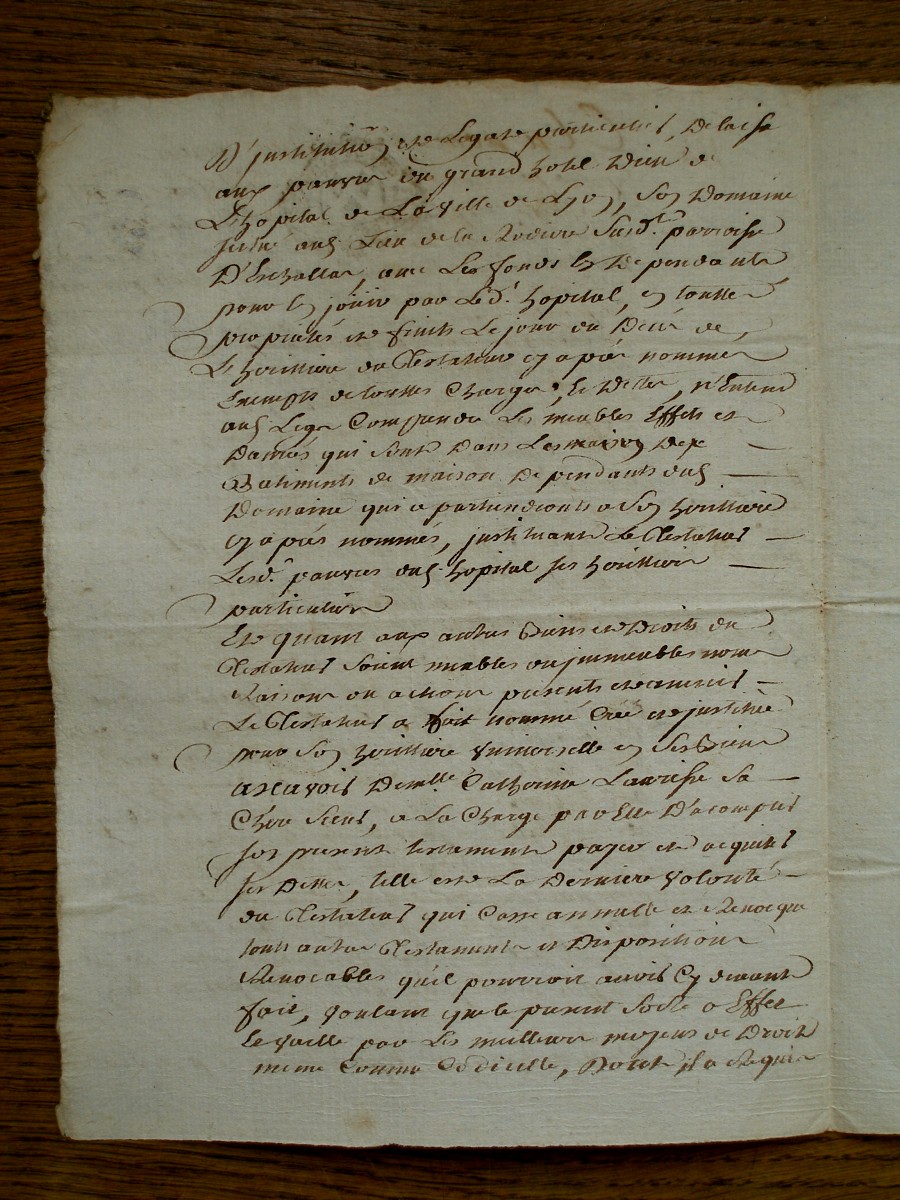 D'institution et Legate particuliere, delaisse
aux pauvres du grand hotel Dieu de
L'hopital de La ville de Lyon, son Domaine
scitué aud. Lieu de la Rodiere susd.e parroisse
D'Echallas, avec Les fonds en Dependants
pour en jouir par Led.t hopital, en toutte
proprietés et fruits Le jour du Decés de
L'heritiere du Testateur cy après nommée
Exempte de touttes Charges, et Dettes, n'Entend
aud. Legat Comprendre Les meubles Effets et
Danrés qui sont Dans Les maison Dex
Batiments de maison Dependants dud.
Domaine qui apartiendronts a Son heritiere
cy après nommés, instituant Le Testateur
Lesd. pauvres dud. hopital ses heritiers
particuliers
Et quant aux autres Biens et Droits du
Testateur Soient meubles ou immeubles noms
Raisons ou actions presents et avenir
Le Testateur a fait nommé Créé et institué
pour Son heritiere universelle en Ses Biens
ascavoir Demlle Catherine Laurisse Sa
Chere Sieur, a La Charge par Elle D'acomplir
son present testament payer et acquitter
ses Dettes, telle est La Derniere volonté
du Testateur qui Casse annulle et Revoque
touts autres Testaments et Dispositions
Revocables qu'il pourroit avoir Cy devant
fait, voulant que le present Sorte a Effet
Et vaille par Les meilleurs moyens de Droit
meme Comme Codicille, Dont il a Requis